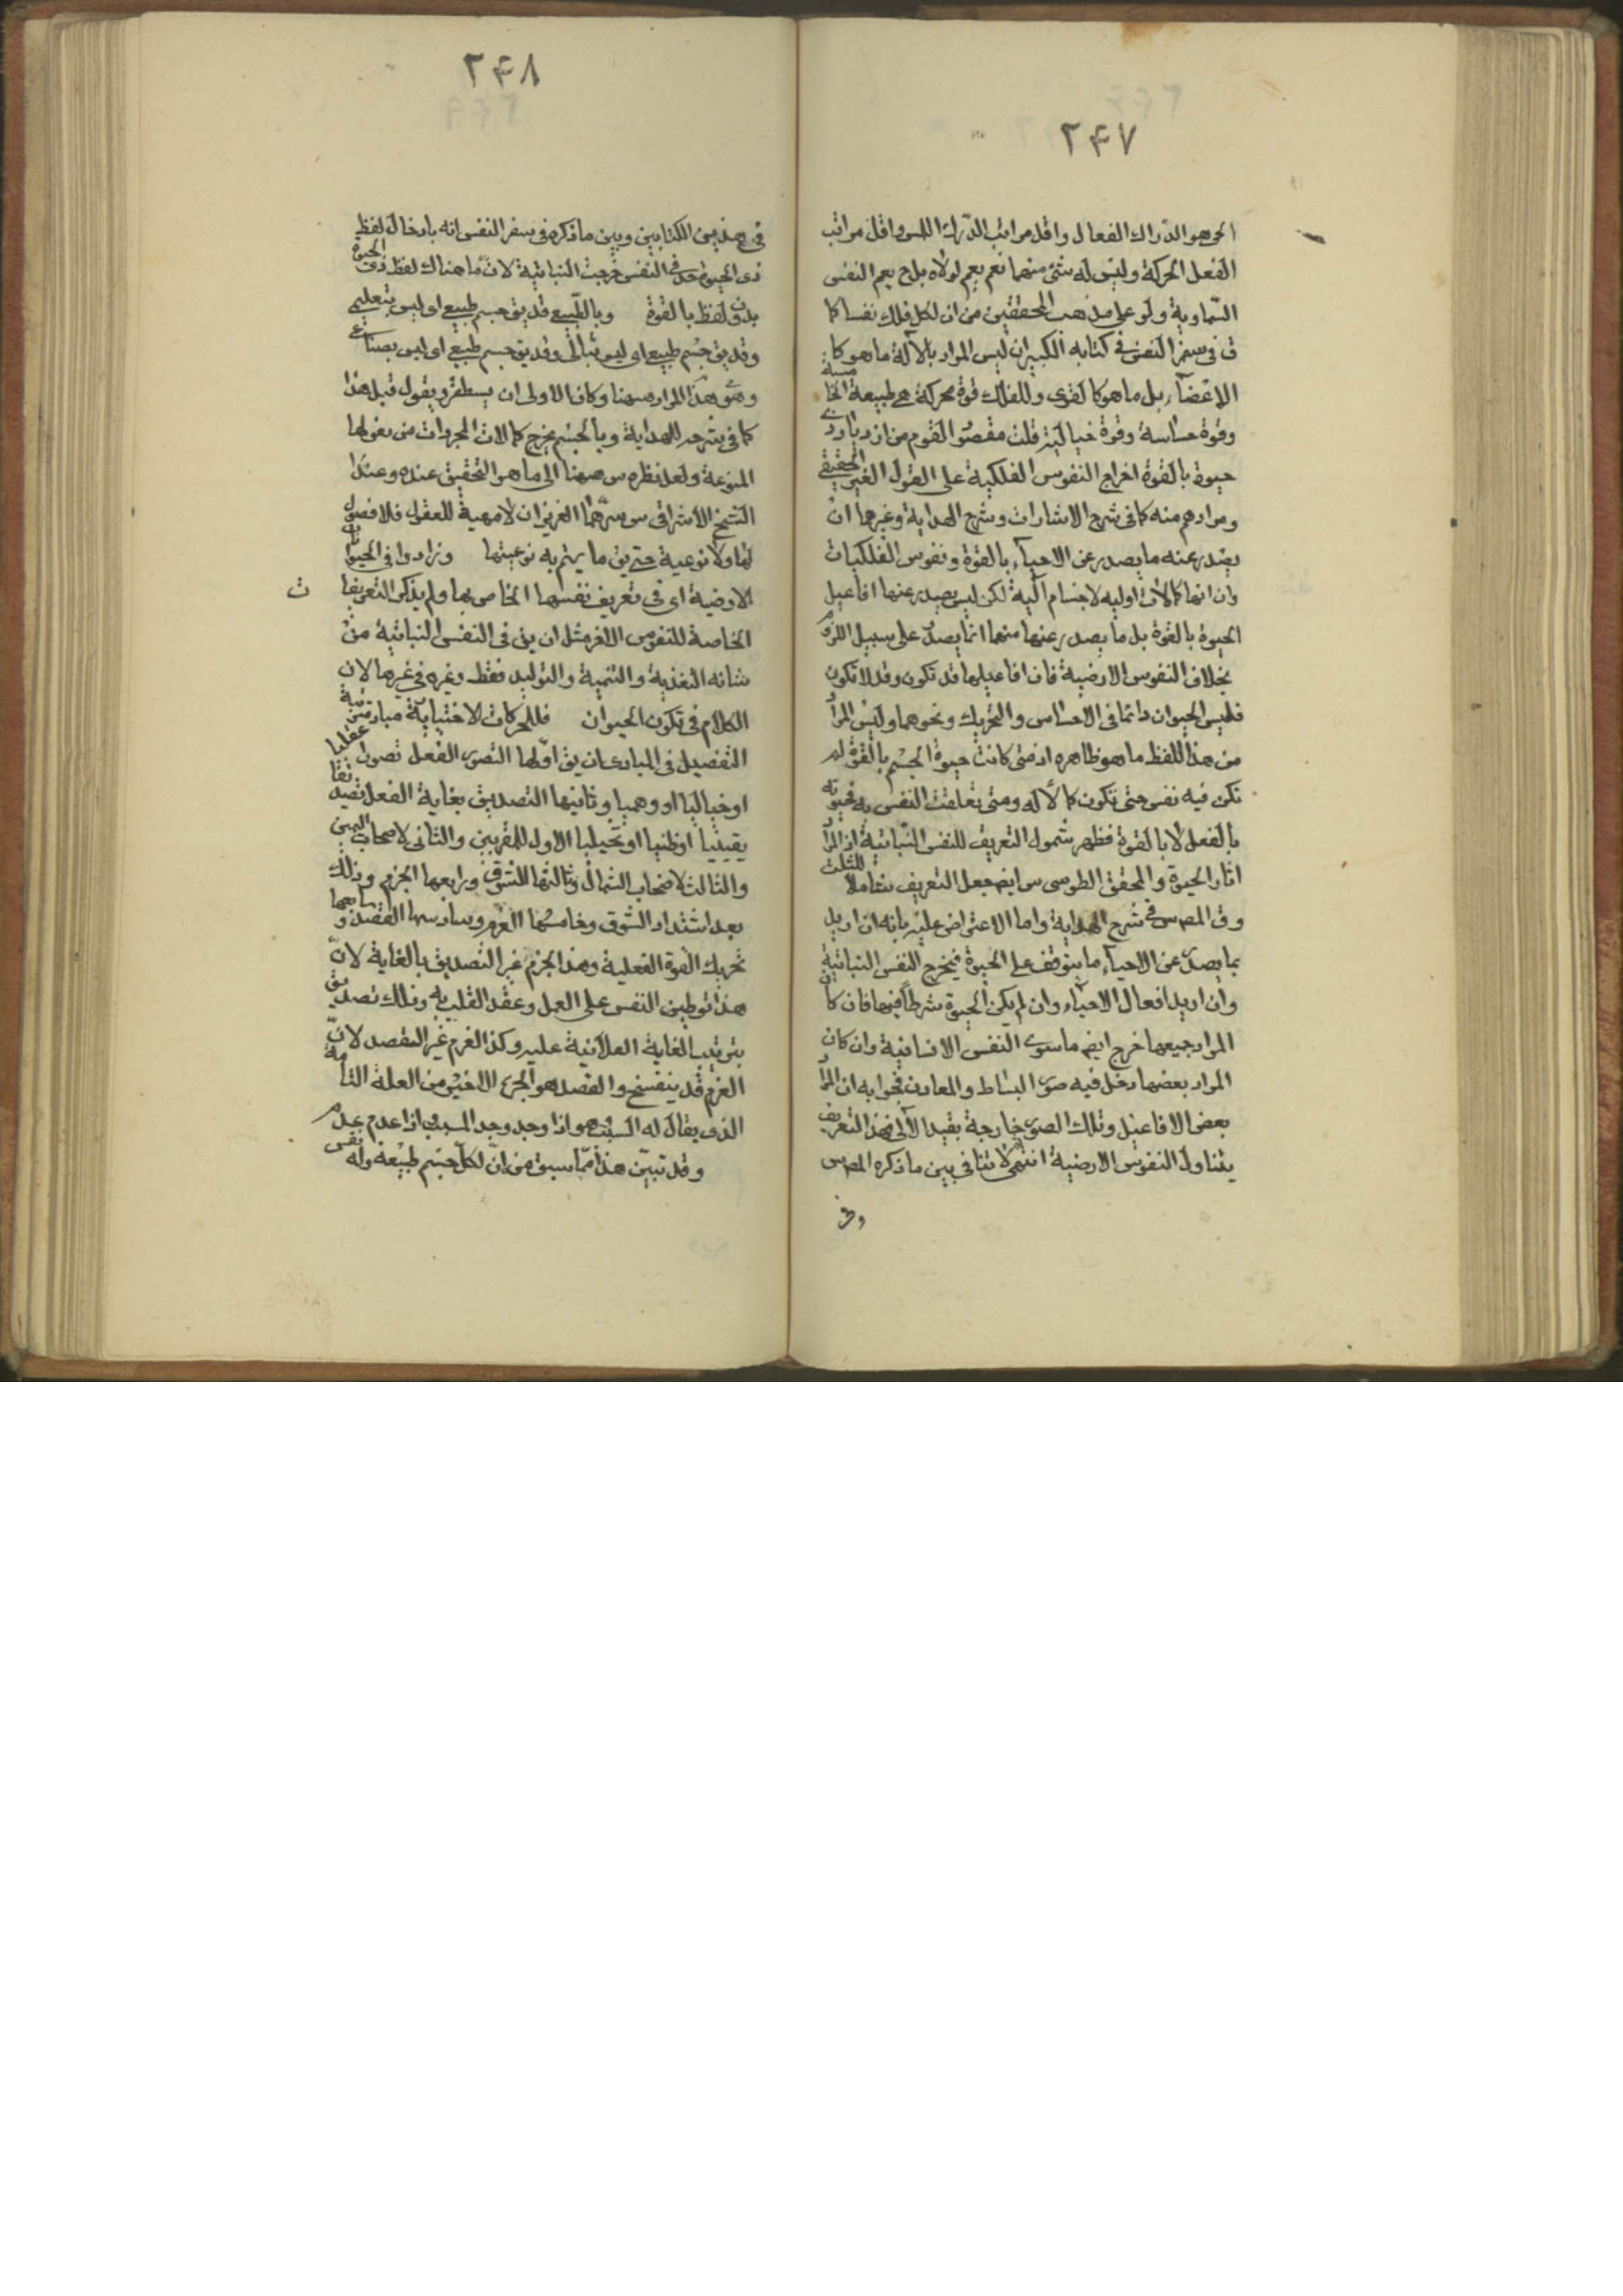 ٢٤٧
الحى هو الدّراك الفعال واقل مراتب الدّرك اللمس واقل مراتب
الفعل الحركة وليس له شئ منهما نعم يعم لولاه بلح يعم النفس
السّماوية ولو على مذهب المحققين من ان لكل فلك نفسا كما
ق فى سفر النفس فى كتابه الكبير ان ليس المراد بالآلة ما هو كا
الاعضآء بل ما هو كالقوى وللفلك قوة محركة هى طبيعة الخا
مسة
وقوة حساسة وقوة خيالية قلت مقصود القوم من ازدياد ذى
حيوة بالقوة اخراج النفوس الفلكية على القول الغير الحقيقى
ومرادهم منه كما فى شرح الاشارات وشرح الهداية وغيرهما ان
يصدر عنه ما يصدر عن الاحيآء بالقوة ونفوس الفلكيات
وان انها كمالات اوليه لاجسام آلية لكن ليس يصدر عنها افاعيل
الحيوة بالقوة بل ما يصدر عنها منها انما يصدر على سبيل اللزوم
بخلاف النفوس الارضية فان افاعيلها قد تكون وقد لا تكون
فليس الحيوان دائما فى الاحساس والتحريك ونحوهما وليس المرا
من هذا اللفظ ما هو ظاهره اذ متى كانت حيوة الجسم بالقوة لم
تكن فيه نفس حتى تكون كمالا له ومتى تعلقت النفس به فحيوته
بالفعل لا بالقوة فظهر شمول التعريف للنفس النّباتية اذ المرا
اثار الحيوة والمحقق الطوسى س ايضا جعل التعريف شاملا للثلث
وق المص س فى شرح الهداية واما الاعتراض عليه بانه ان اريد
بما يصدر عن الاحيآء ما يتوقف على الحيوة فيخرج النفس النباتية
وان اريد افعال الاحيآء وان لم يكن الحيوة شرطا فيها فان كان
المراد جميعها خرج ايضا ما سوى النفس الانسانية وان كان
المراد بعضها دخل فيه صور البسائط والمعادن فجوابه ان المرا
بعض الافاعيل وتلك الصور خارجة بقيد الآلى فهذا التعريف
يتناول النفوس الارضية انتهى لا تنافى بين ما ذكره المص س
وفى
٢٤٨
فى هذين الكتابين وبين ما ذكره فى سفر النفس انه بادخال لفظ
ذى الحيوة حد فى النفس خرجت النباتية لان ما هناك لفظ ذى الحيوة
بدون لفظ بالقوة وبالطّبيعى قد يق جسم طبيعى اى ليس بتعليمى
وقد يق جسم طبيعى اى ليس بمثالى وقد يق جسم طبيعى اى ليس بصناعى
وهو هذا المراد هيهنا وكان الاولى ان يسطقرد يقول قبل هذا
كما فى شرحه للهداية وبالجسم يخرج كمالات المجردات من فعولها
المنوعة ولعل نظره س هيهنا الى ما هو التحقيق عنده وعند
الشيخ الاشراقى س سرّهما العزيز ان لا مهية للعقول فلا فصول
لها ولا نوعية حتى يق ما يتم به نوعيتها وزادوا فى الحيوان
ت
الارضية اى فى تعريف نفسها الخاص بها ولم يذكر التعريفا
الخاصة للنفوس الاخر مثل ان يق فى النفس النباتية من
شانه التغذية والتنمية والتوليد فقط وغيره فى غيرها لان
الكلام فى تكون الحيوان فللحركات الاختيارية مباد مترتبة
التفصيل فى المبادى ان يق اوّلها التصور الفعل تصورا عقليا
او خياليا او وهميا وثانيها التصديق بغاية الفعل تصديقا
يقينيا او ظنيا او تخيليا الاول للمقربين والثانى لاصحاب اليمين
والثالث لاصحاب الشمال وثالثها الشّوق ورابعها الجزم وذلك
بعد اشتداد الشوق وخامسها العزم وسادسها القصد وسابعها
تحريك القوة الفعلية وهذا الجزم غير التصديق بالغاية لانّ
هذا توطين النفس على العمل وعقد القلب به وذلك تصديق
بترتيب الغاية الفلانية عليه وكذا العزم غير القصد لانّ
العزم قد ينفسخ والقصد هو الجزء الاخير من العلة التامة
الذى يقال له السّبب هو اذا وجد وجد المسبب اذا عدم عدم
وقد تبيّن هذا ممّا سبق من انّ لكل جسم طبيعة وله نفس